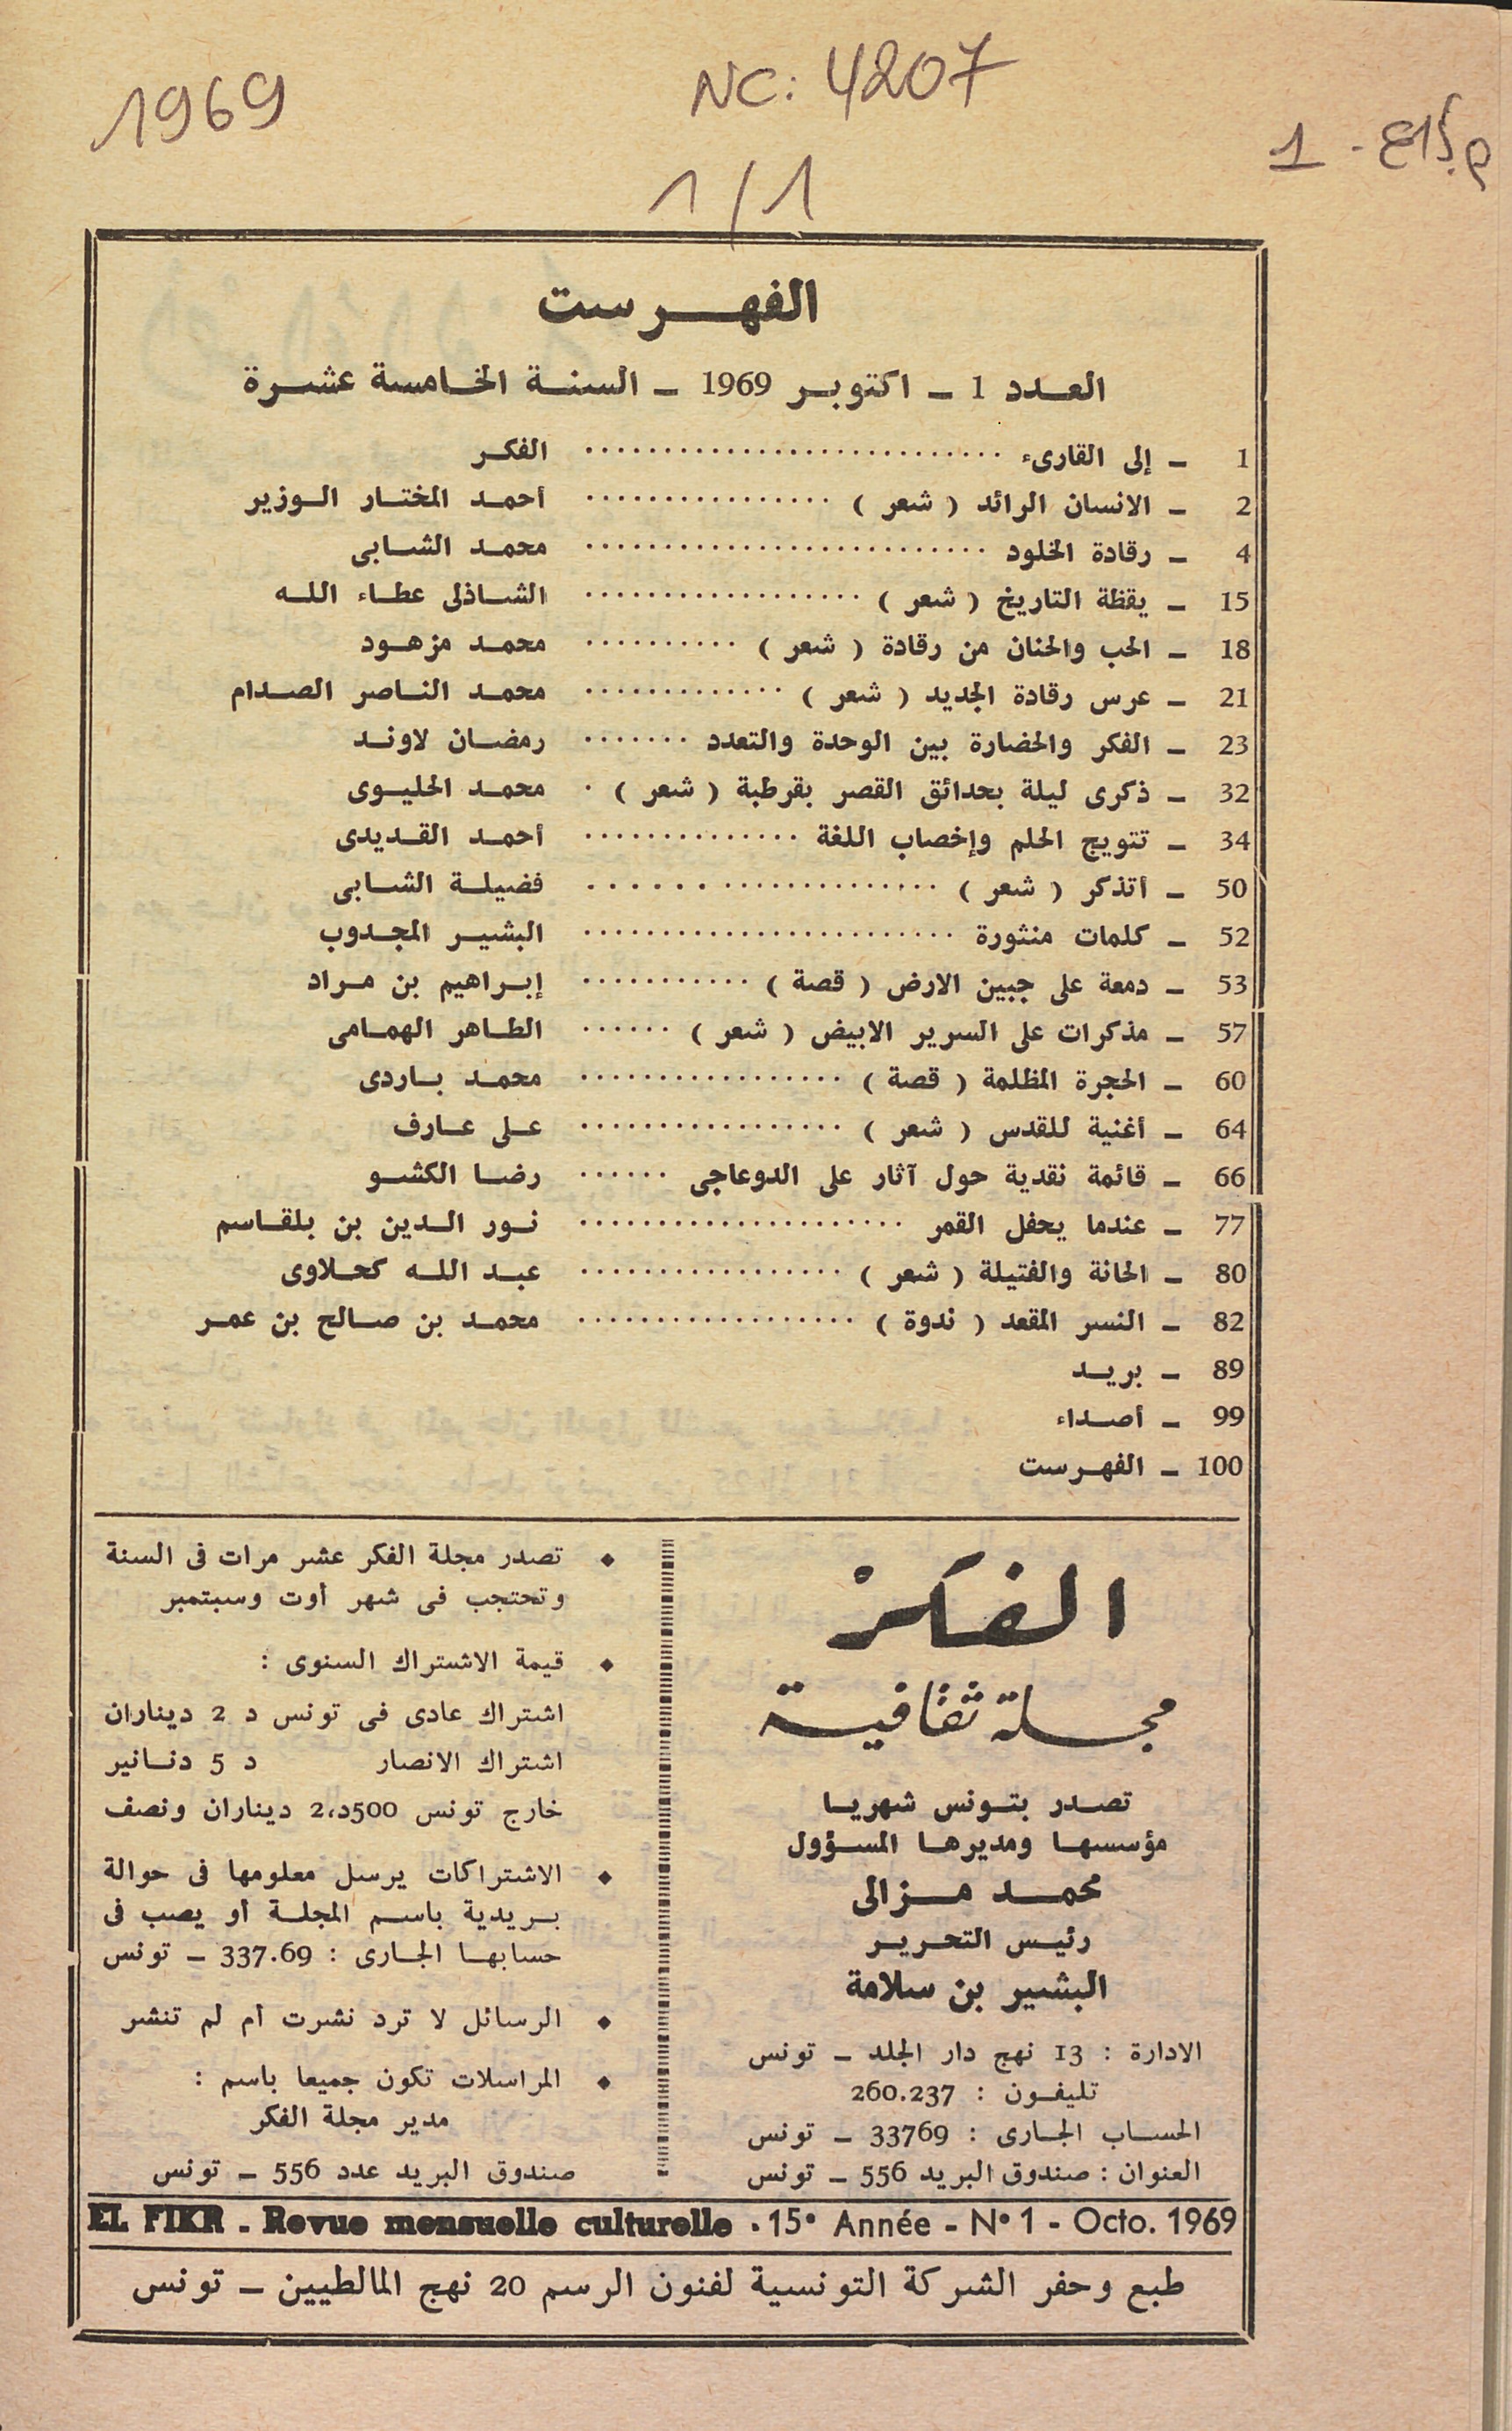 1969
NC: 4207
1/1
1 -
الفهرست
العدد 1 ـ اكتوبر 1969 ـ السنة الخامسة عشرة
1 ـ إلى القارىء ........................... الفكر
2 ـ الانسان الرائد ( شعر ) ................ أحمد المختار الوزير
4 ـ رقادة الخلود .......................... محمد الشابى
15 ـ يقظة التاريخ ( شعر ) .................. الشاذلى عطاء الله
18 ـ الحب والحنان من رقادة ( شعر ) .......... محمد مزهود
21 ـ عرس رقادة الجديد ( شعر ) ............. محمد الناصر الصدام
23 ـ الفكر والحضارة بين الوحدة والتعدد ....... رمضان لاوند
32 ـ ذكرى ليلة بحدائق القصر بقرطبة ( شعر ) . محمد الحليوى
34 ـ تتويج الحلم وإخصاب اللغة .............. أحمد القديدى
50 ـ أتذكر ( شعر ) ..................... فضيلة الشابى
52 ـ كلمات منثورة ........................ البشير المجدوب
53 ـ دمعة على جبين الارض ( قصة ) ........... إبراهيم بن مراد
57 ـ مذكرات على السرير الابيض ( شعر ) ...... الطاهر الهمامى
60 ـ الحجرة المظلمة ( قصة ) ................. محمد باردى
64 ـ أغنية للقدس ( شعر ) ................. على عارف
66 ـ قائمة نقدية حول آثار على الدوعاجى ...... رضا الكشو
77 ـ عندما يحفل القمر ..................... نور الدين بن بلقاسم
80 ـ الحانة والفتيلة ( شعر ) ................. عبد الله كحلاوى
82 ـ النسر المقعد ( ندوة ) .................. محمد بن صالح بن عمر
89 ـ بريد
99 ـ أصداء
100 ـ الفهرست
الفكر
مجلة ثقافية
تصدر بتونس شهريا
مؤسسها ومديرها المسؤول
محمد مزالى
رئيس التحرير
البشير بن سلامة
الادارة : 13 نهج دار الجلد ـ تونس
تليفون : 260.237
الحساب الجارى : 33769 ـ تونس
العنوان : صندوق البريد 556 ـ تونس
◆ تصدر مجلة الفكر عشر مرات فى السنة
وتحتجب فى شهر أوت وسبتمبر
◆ قيمة الاشتراك السنوى :
اشتراك عادى فى تونس د 2 ديناران
اشتراك الانصار د 5 دنانير
خارج تونس 500د،2 ديناران ونصف
◆ الاشتراكات يرسل معلومها فى حوالة
بريدية باسم المجلة أو يصب فى
حسابها الجارى : 337.69 ـ تونس
◆ الرسائل لا ترد نشرت أم لم تنشر
◆ المراسلات تكون جميعا باسم :
مدير مجلة الفكر
صندوق البريد عدد 556 ـ تونس
EL FIKR - Revue mensuelle culturelle - 15° Année - N° 1 - Octo. 1969
طبع وحفر الشركة التونسية لفنون الرسم 20 نهج المالطيين ـ تونس